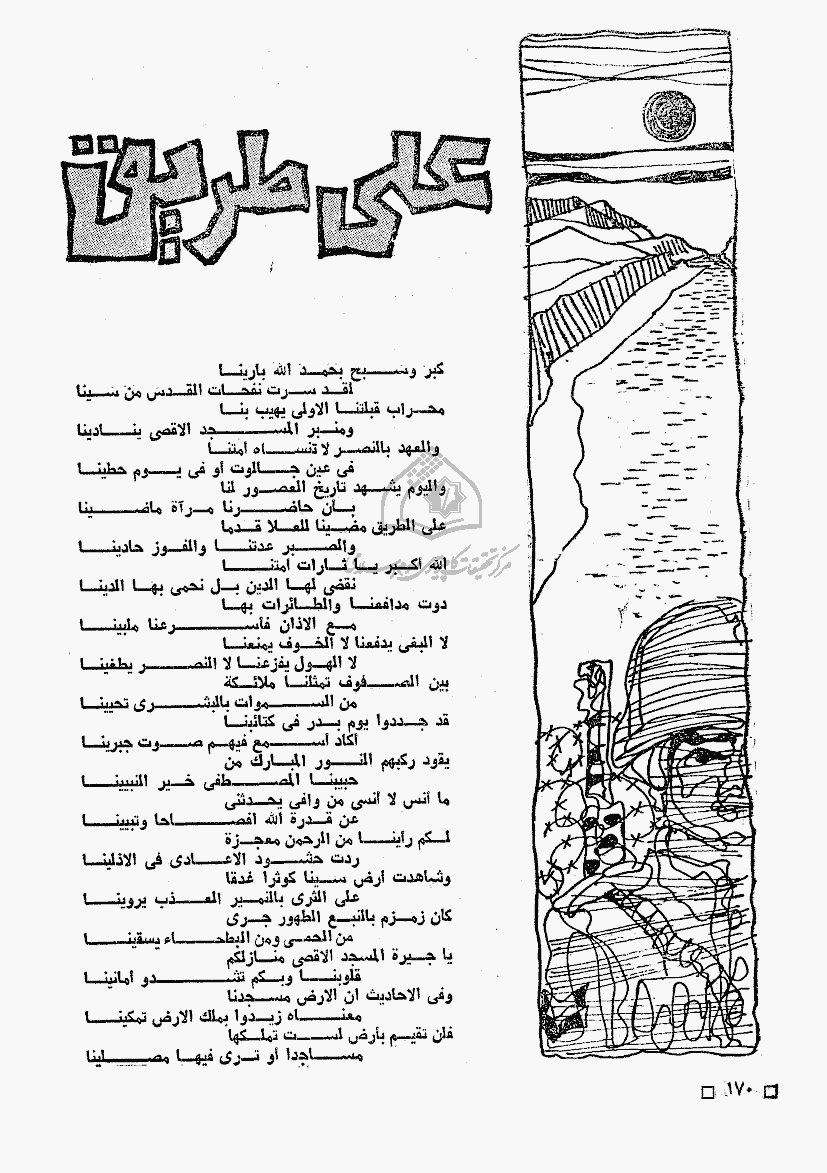 على طريق
كبر وسبح بحمد الله بارينا
لقد سرت نفحات القدس من سينا
محراب قبلتنا الاولى يهيب بنا
ومنبر المسجد الاقصى ينادينا
والعهد بالنصر لا تنساه أمتنا
فى عين جالوت أو فى يوم حطينا
واليوم يشهد تاريخ العصور لنا
بأن حاضرنا مرآة ماضينا
على الطريق مضينا للعلا قدما
والصبر عدتنا والفوز حادينا
الله أكبر يا ثارات أمتنا
نقضى لها الدين بل نحمى بها الدينا
دوت مدافعنا والطائرات بها
مع الاذان فأسرعنا ملبينا
لا البغى يدفعنا لا الخوف يمنعنا
لا الهول يفزعنا لا النصر يطغينا
بين الصفوف تمثلنا ملائكة
من السموات بالبشرى تحيينا
قد جددوا يوم بدر فى كتائبنا
أكاد أسمع فيهم صوت جبرينا
يقود ركبهم النور المبارك من
حبيبنا المصطفى خير النبيينا
ما أنس لا أنسى من وافى يحدثنى
عن قدرة الله افصاحا وتبيينا
لكم رأينا من الرحمن معجزة
ردت حشود الاعادى فى الاذلينا
وشاهدت أرض سينا كوثرا غدقا
على الثرى بالنمير العذب يروينا
كان زمزم بالنبع الطهور جرى
من الحمى ومن البطحاء يسقينا
يا جيرة المسجد الاقصى منازلكم
قلوبنا وبكم تشدو أمانينا
وفى الاحاديث ان الارض مسجدنا
معناه زيدوا بملك الارض تمكينا
فلن تقيم بأرض لست تملكها
مساجدا أو ترى فيها مصلينا
١٧٠